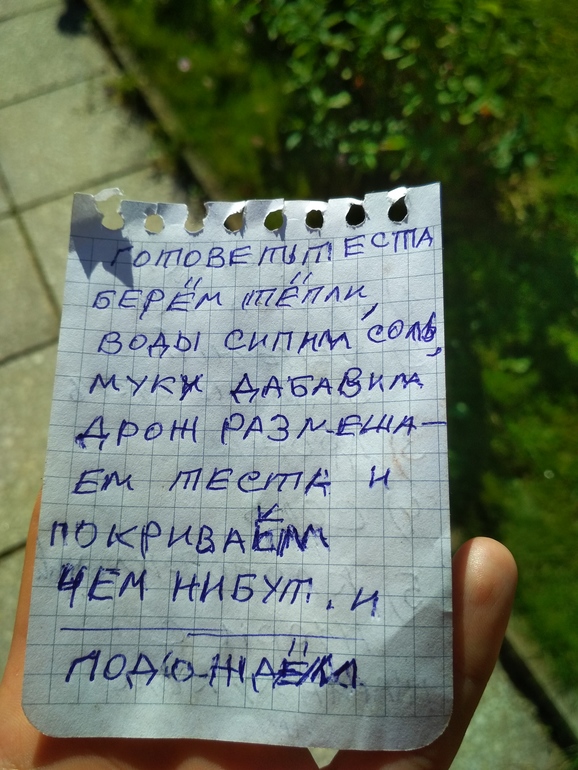 ГОТОВЕТЬТЕСТА
БЕРЁМ ТЁПЛИ,
ВОДЫ СИПИМ СОЛЬ,
МУКУ ДАБАВИМ
ДРОЖ РАЗМЕША-
ЕМ ТЕСТА И
ПОКРИВАЕМ
ЧЕМ НИБУТ. И
ПОДОЖДЁМ